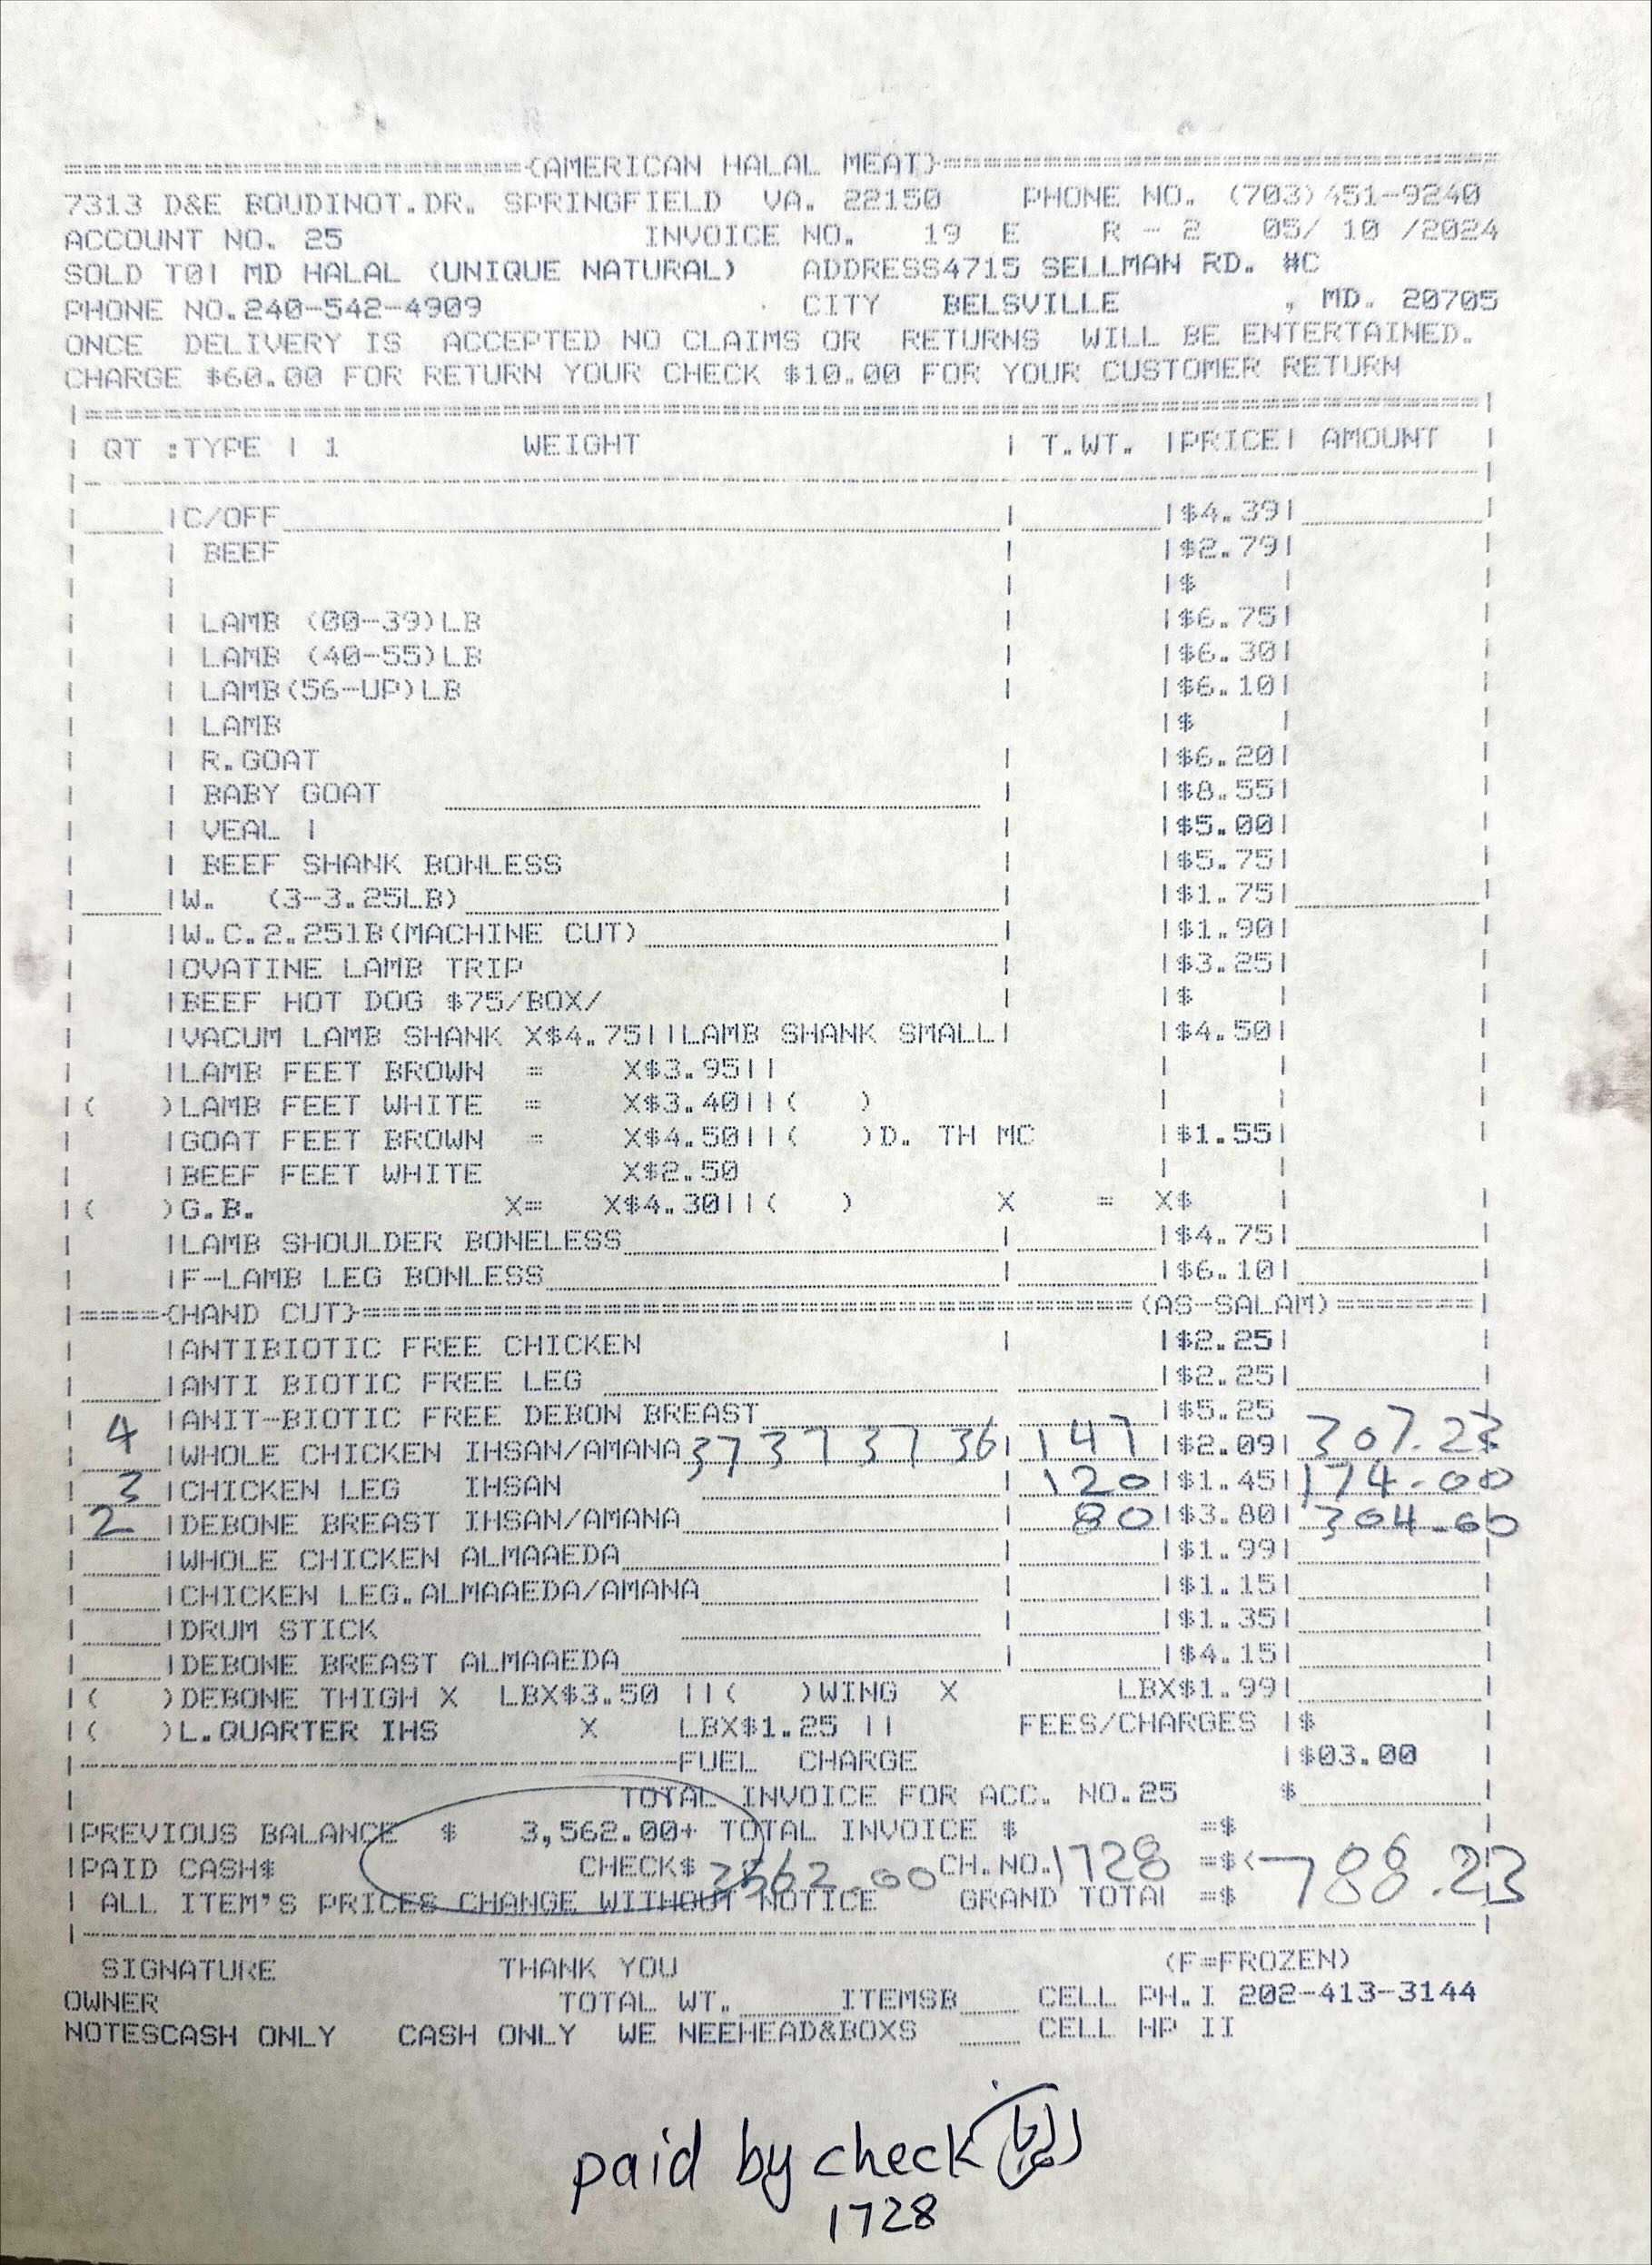 ========================{AMERICAN HALAL MEAT}=============================
7313 D&E BOUDINOT.DR. SPRINGFIELD VA. 22150 PHONE NO. (703)451-9240
ACCOUNT NO. 25 INVOICE NO. 19 E R - 2 05/ 10 /2024
SOLD TO| MD HALAL (UNIQUE NATURAL) ADDRESS4715 SELLMAN RD. #C
PHONE NO.240-542-4909 CITY BELSVILLE , MD. 20705
ONCE DELIVERY IS ACCEPTED NO CLAIMS OR RETURNS WILL BE ENTERTAINED.
CHARGE $60.00 FOR RETURN YOUR CHECK $10.00 FOR YOUR CUSTOMER RETURN
| QT :TYPE | 1 WEIGHT | T.WT. |PRICE| AMOUNT |
|C/OFF |$4.39|
| BEEF |$2.79|
|$ |
| LAMB (00-39)LB |$6.75|
| LAMB (40-55)LB |$6.30|
| LAMB(56-UP)LB |$6.10|
| LAMB |$ |
| R.GOAT |$6.20|
| BABY GOAT |$8.55|
| VEAL | |$5.00|
| BEEF SHANK BONLESS |$5.75|
|W. (3-3.25LB) |$1.75|
|W.C.2.25lB(MACHINE CUT) |$1.90|
|OVATINE LAMB TRIP |$3.25|
|BEEF HOT DOG $75/BOX/ |$ |
|VACUM LAMB SHANK X$4.75||LAMB SHANK SMALL| |$4.50|
|LAMB FEET BROWN = X$3.95||
|( )LAMB FEET WHITE = X$3.40||( )
|GOAT FEET BROWN = X$4.50||( )D. TH MC |$1.55|
|BEEF FEET WHITE X$2.50
|( )G.B. X= X$4.30||( ) X = X$ |
|LAMB SHOULDER BONELESS |$4.75|
|F-LAMB LEG BONLESS |$6.10|
|====={HAND CUT}========================================(AS-SALAM)=======|
|ANTIBIOTIC FREE CHICKEN |$2.25|
|ANTI BIOTIC FREE LEG |$2.25|
|ANIT-BIOTIC FREE DEBON BREAST |$5.25
4 |WHOLE CHICKEN IHSAN/AMANA 37 37 37 36| 147 |$2.09| 307.23
3 |CHICKEN LEG IHSAN 120|$1.45|174.00
2 |DEBONE BREAST IHSAN/AMANA 80|$3.80| 304.00
|WHOLE CHICKEN ALMAAEDA |$1.99|
|CHICKEN LEG.ALMAAEDA/AMANA |$1.15|
|DRUM STICK |$1.35|
|DEBONE BREAST ALMAAEDA |$4.15|
|( )DEBONE THIGH X LBX$3.50 ||( )WING X LBX$1.99|
|( )L.QUARTER IHS X LBX$1.25 || FEES/CHARGES |$
FUEL CHARGE |$03.00
TOTAL INVOICE FOR ACC. NO.25 $
|PREVIOUS BALANCE $ 3,562.00+ TOTAL INVOICE $ =$
|PAID CASH$ CHECK$ 3562.00 CH.NO. 1728 =$<
| ALL ITEM'S PRICES CHANGE WITHOUT NOTICE GRAND TOTAl =$ 788.23
SIGNATURE THANK YOU (F=FROZEN)
OWNER TOTAL WT. ITEMSB CELL PH.I 202-413-3144
NOTESCASH ONLY CASH ONLY WE NEEHEAD&BOXS CELL HP II
paid by check
1728